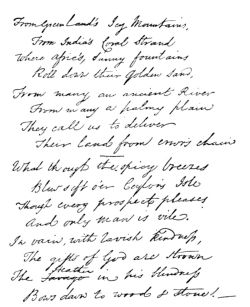 From Greenland's Icy Mountains,
From India's Coral Strand
Where Afric's, Sunny fountains
Roll down their golden Sand,
From many an ancient River
From many a palmy plain
They call us to deliver
Their Land from errors chain
What though the spicy breezes
Blow soft o'er Ceylon's Isle
Though every prospect pleases
And only man is vile.
In vain, with lavish kindness,
The gifts of God are strown
The Heathen in his blindness
Bows down to wood & Stone!—